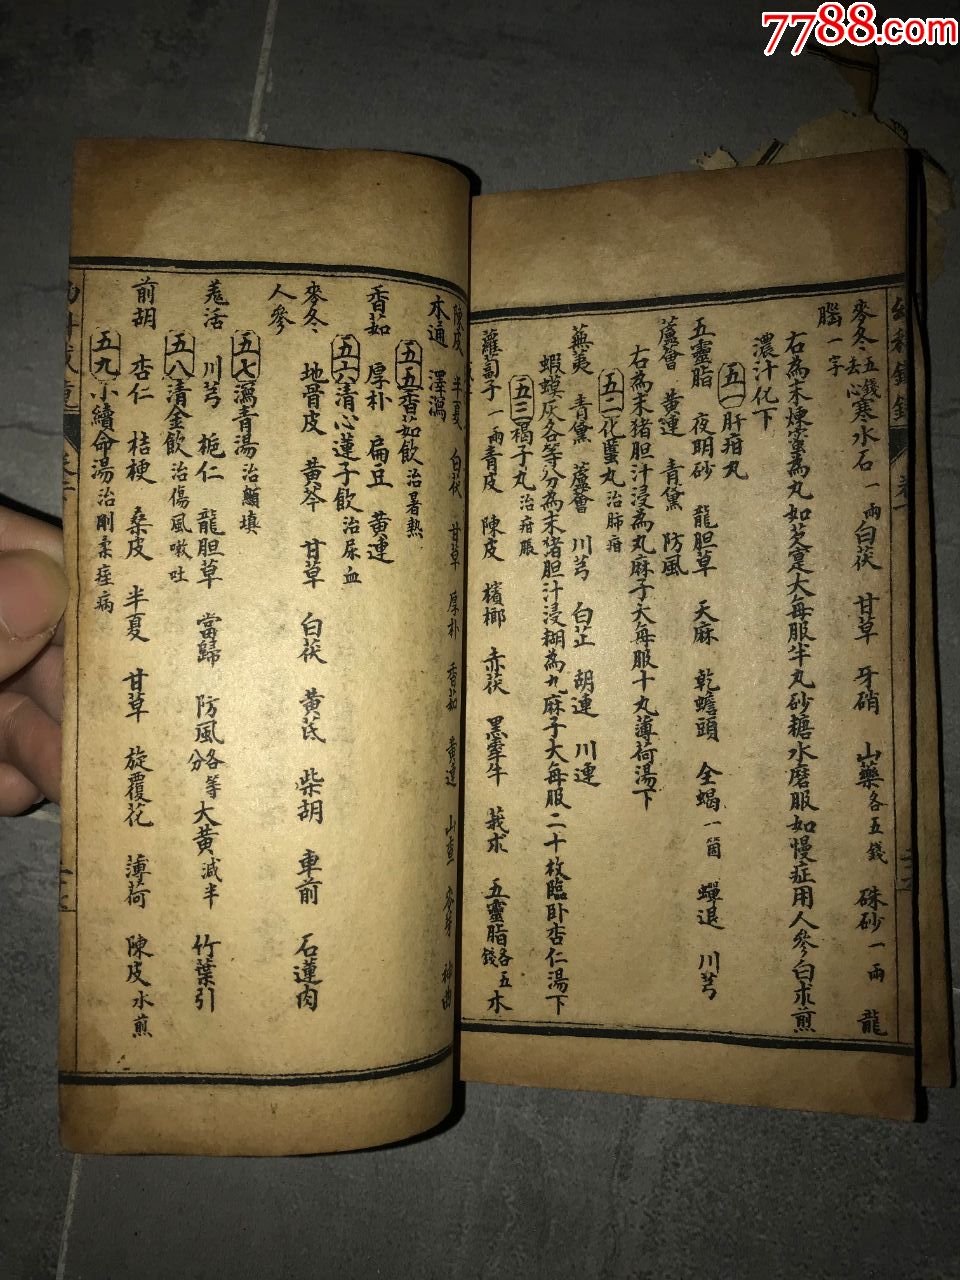 7788.com
幼科鐵鏡
麥冬五錢去心寒水石一兩白茯 甘草 牙硝 山藥各五錢 硃砂一兩 龍
腦一字
右為末煉蜜為丸如芡實大每服半丸砂糖水磨服如慢症用人參白朮煎
濃汁化下
五一肝疳丸
五靈脂 夜明砂 龍胆草 天麻 乾蟾頭 全蝎一箇 蟬退 川芎
蘆薈 黃連 青黛 防風
右為末猪胆汁浸為丸麻子大每服十丸薄荷湯下
五二化䘌丸治肺疳
蕪荑 青黛 蘆薈 川芎 白芷 胡連 川連
蝦蟆灰各等分為末猪胆汁浸糊為丸麻子大每服二十枚臨卧杏仁湯下
五三褐子丸治疳脹
蘿蔔子一兩青皮 陳皮 檳榔 赤茯 黑牽牛 莪朮 五靈脂各五錢 木
陳皮 半夏 白茯 甘草 厚朴 香茹 黃連 山查 麥芽 神曲
木通 澤瀉
五五香茹飲治暑熱
香茹 厚朴 扁豆 黃連
五六清心蓮子飲治尿血
麥冬 地骨皮 黃芩 甘草 白茯 黃芪 柴胡 車前 石蓮肉
人參
五七瀉青湯治顖填
羗活 川芎 梔仁 龍胆草 當歸 防風各等分 大黃減半 竹葉引
五八清金飲治傷風嗽吐
前胡 杏仁 桔梗 桑皮 半夏 甘草 旋覆花 薄荷 陳皮水煎
五九小續命湯治剛柔痓病